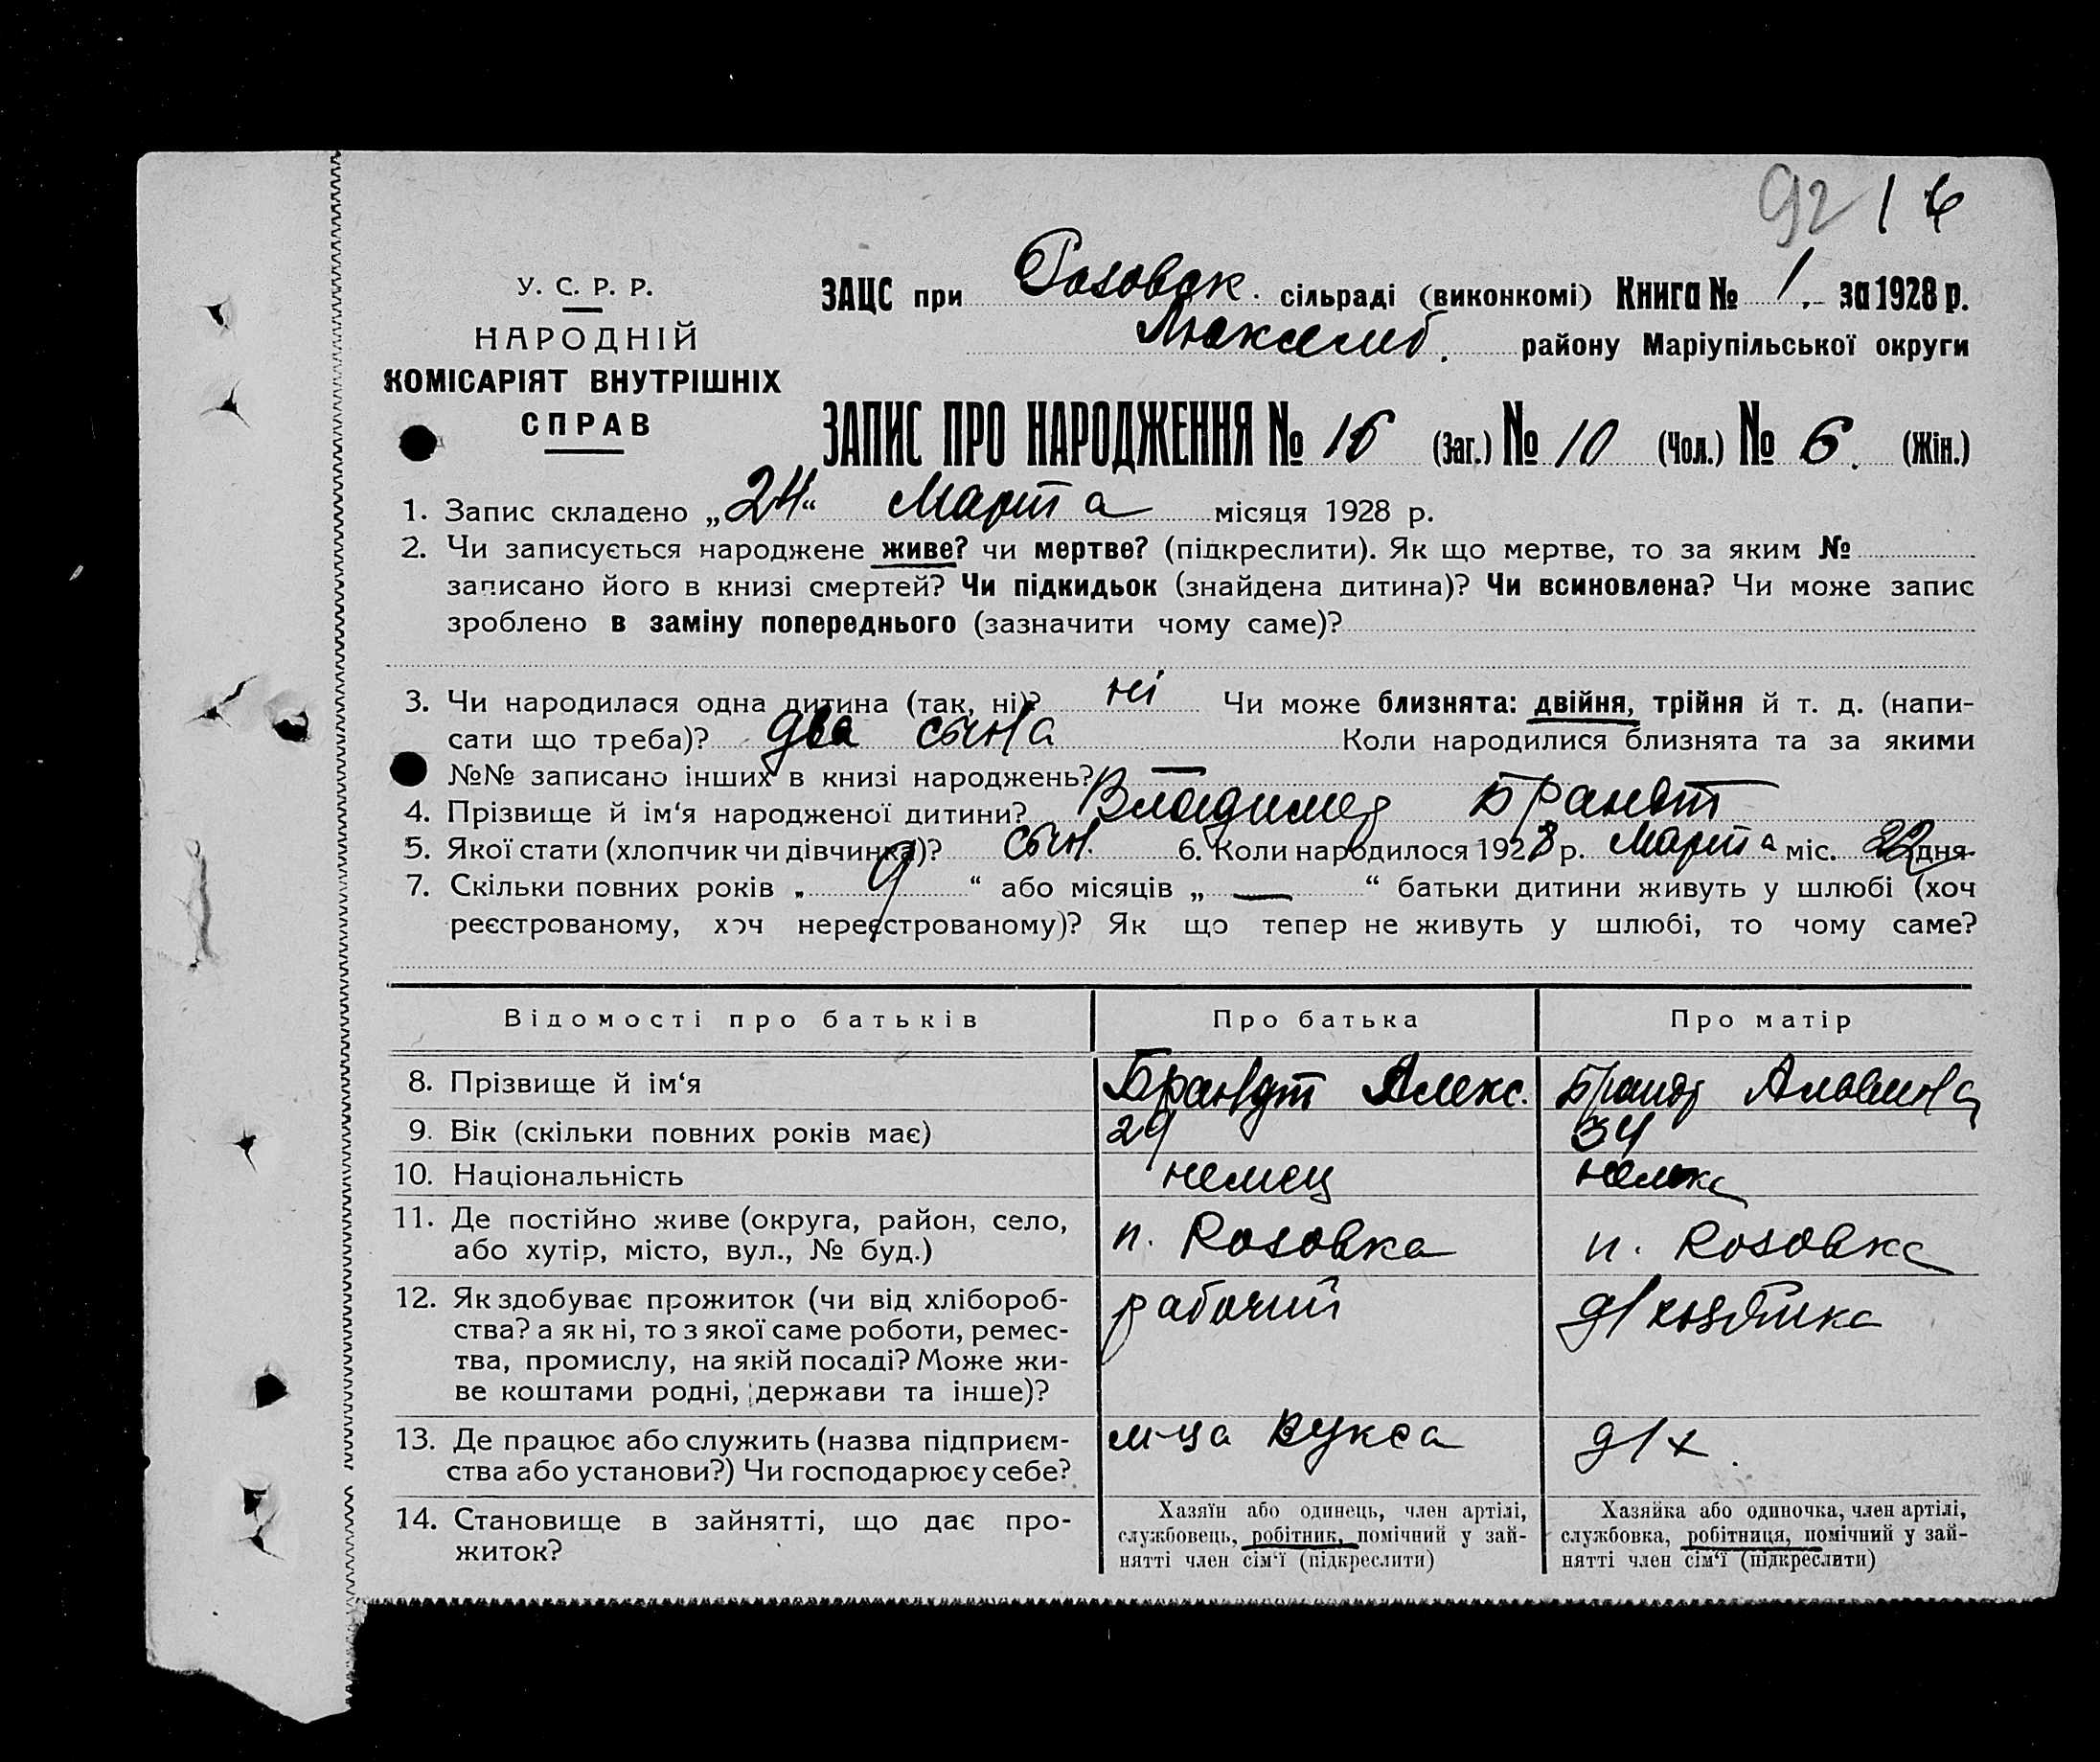 92 16
У. С. Р. Р.
НАРОДНІЙ
КОМІСАРІЯТ ВНУТРІШНІХ
СПРАВ
ЗАЦС при Розовск. сільраді (виконкомі) Книга № 1. за 1928 р.
Люксемб. району Маріупільської округи
ЗАПИС ПРО НАРОДЖЕННЯ № 16 (Заг.) № 10 (Чол.) № 6. (Жін.)
1. Запис складено „24“ Марта місяця 1928 р.
2. Чи записується народжене живе? чи мертве? (підкреслити). Як що мертве, то за яким №
записано його в книзі смертей? Чи підкидьок (знайдена дитина)? Чи всиновлена? Чи може запис
зроблено в заміну попереднього (зазначити чому саме)?
3. Чи народилася одна дитина (так, ні)? ні Чи може близнята: двійня, трійня й т. д. (напи-
сати що треба)? два сына Коли народилися близнята та за якими
№№ записано інших в книзі народжень? —
4. Прізвище й ім‘я народженої дитини? Владимер Брандт
5. Якої стати (хлопчик чи дівчинка)? сын. 6. Коли народилося 1928 р. Марта міс. 22 дня
7. Скільки повних років „ 9 “ або місяців „ — “ батьки дитини живуть у шлюбі (хоч
реєстрованому, хоч нереєстрованому)? Як що тепер не живуть у шлюбі, то чому саме?
Відомості про батьків Про батька Про матір
8. Прізвище й ім‘я Брандт Алекс. Брандт Альвина
9. Вік (скільки повних років має) 29 34
10. Національність немец немка
11. Де постійно живе (округа, район, село,
або хутір, місто, вул., № буд.) п. Rозовка п. Rозовка
12. Як здобуває прожиток (чи від хлібороб-
ства? а як ні, то з якої саме роботи, ремес-
тва, промислу, на якій посаді? Може жи-
ве коштами родні, держави та інше)? рабочий д/хозяйка
13. Де працює або служить (назва підприєм-
ства або установи?) Чи господарює у себе? м-ца Вукса д/х.
14. Становище в зайнятті, що дає про-
житок?
Хазяїн або одинець, член артілі,
службовець, робітник, помічний у зай-
нятті член сім‘ї (підкреслити)
Хазяйка або одиночка, член артілі,
службовка, робітниця, помічний у зай-
нятті член сім‘ї (підкреслити)